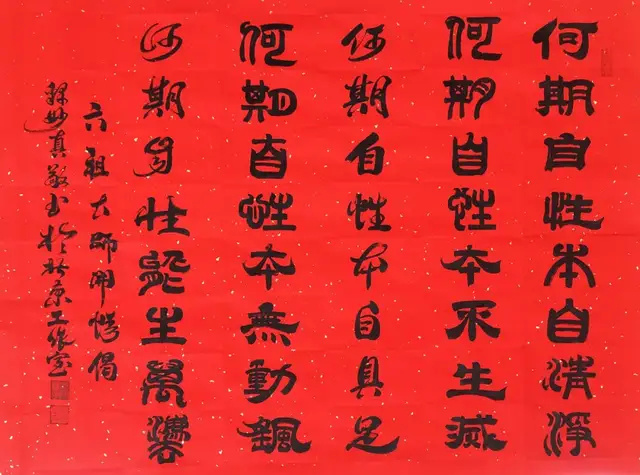 何期自性本自清淨
何期自性本不生滅
何期自性本自具足
何期自性本無動颻
何期自性能生萬灋
六祖大師開悟偈
妙真敬书於北京工作室